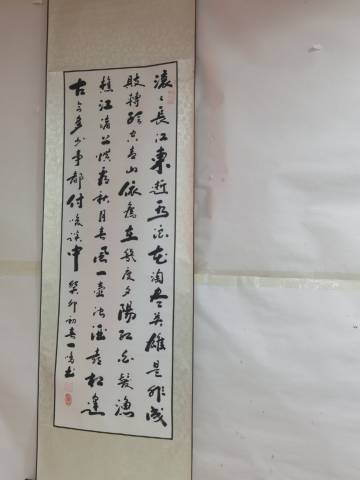 滚〻長江東逝水浪花淘尽英雄是非成
敗轉頭空青山依舊在幾度夕陽紅白髮漁
樵江渚上慣看秋月春風一壺濁酒喜相逢
古今多少事都付笑談中 癸卯初春一鳴书